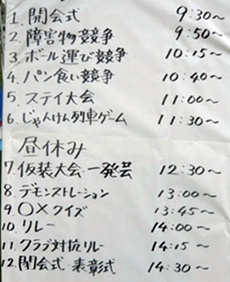 1. 開会式 9:30〜
2. 障害物競争 9:50〜
3. ボール運び競争 10:15〜
4. パン食い競争 10:40〜
5. ステイ大会 11:00〜
6. じゃんけん列車ゲーム 11:30〜
昼休み
7. 仮装大会 一発芸 12:30〜
8. デモンストレーション 13:00〜
9. ○×クイズ 13:45〜
10. リレー 14:00〜
11. クラブ対抗リレー 14:15〜
12. 閉会式 表彰式 14:30〜